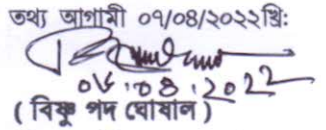 তথ্য আগামী ০৭/০৪/২০২২খ্রি:
০৬.০৪.২০২২
( বিষ্ণু পদ ঘোষাল )